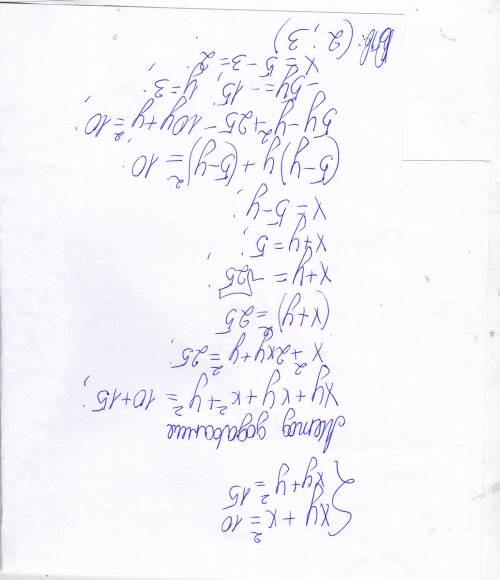 {xy + x² = 10
xy + y² = 15
Метод додавання
xy + xy + x² + y² = 10 + 15;
x² + 2xy + y² = 25;
(x + y)² = 25
x + y = √25;
x + y = 5;
x = 5 - y;
(5 - y)y + (5 - y)² = 10
5y - y² + 25 - 10y + y² = 10;
-5y = -15; y = 3;
x = 5 - 3 = 2;
Відп: (2; 3)